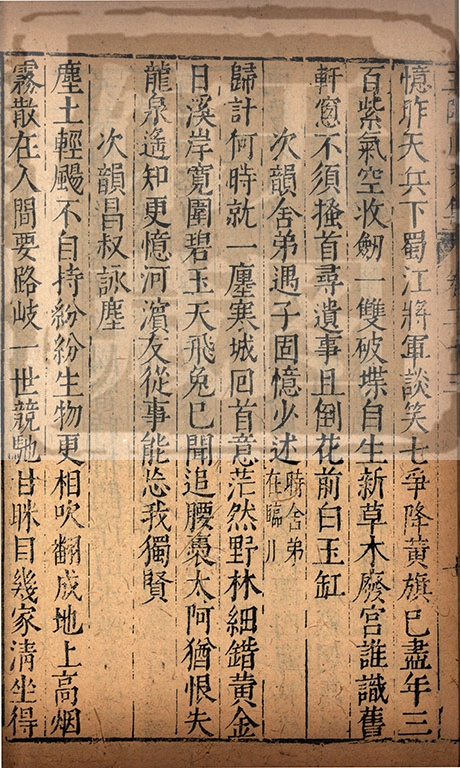 憶昨天兵下蜀江將軍談笑七爭降黃旗已盡年三
百紫氣空收劒一雙破堞自生新草木廢宮誰識舊
軒窻不須搔首尋遺事且倒花前白玉缸
次韻舍弟遇子固憶少述時舍弟在臨川
歸計何時就一廛寒城回首意茫然野林細錯黃金
日溪岸寛圍碧玉天飛兔已聞追腰褭太阿猶恨失
龍泉遙知更憶河濵友從事能忘我獨賢
次韻昌叔詠塵
塵土輕颺不自持紛紛生物更相吹翻成地上高烟
霧散在人間要路岐一世競馳甘眯目幾家清坐得